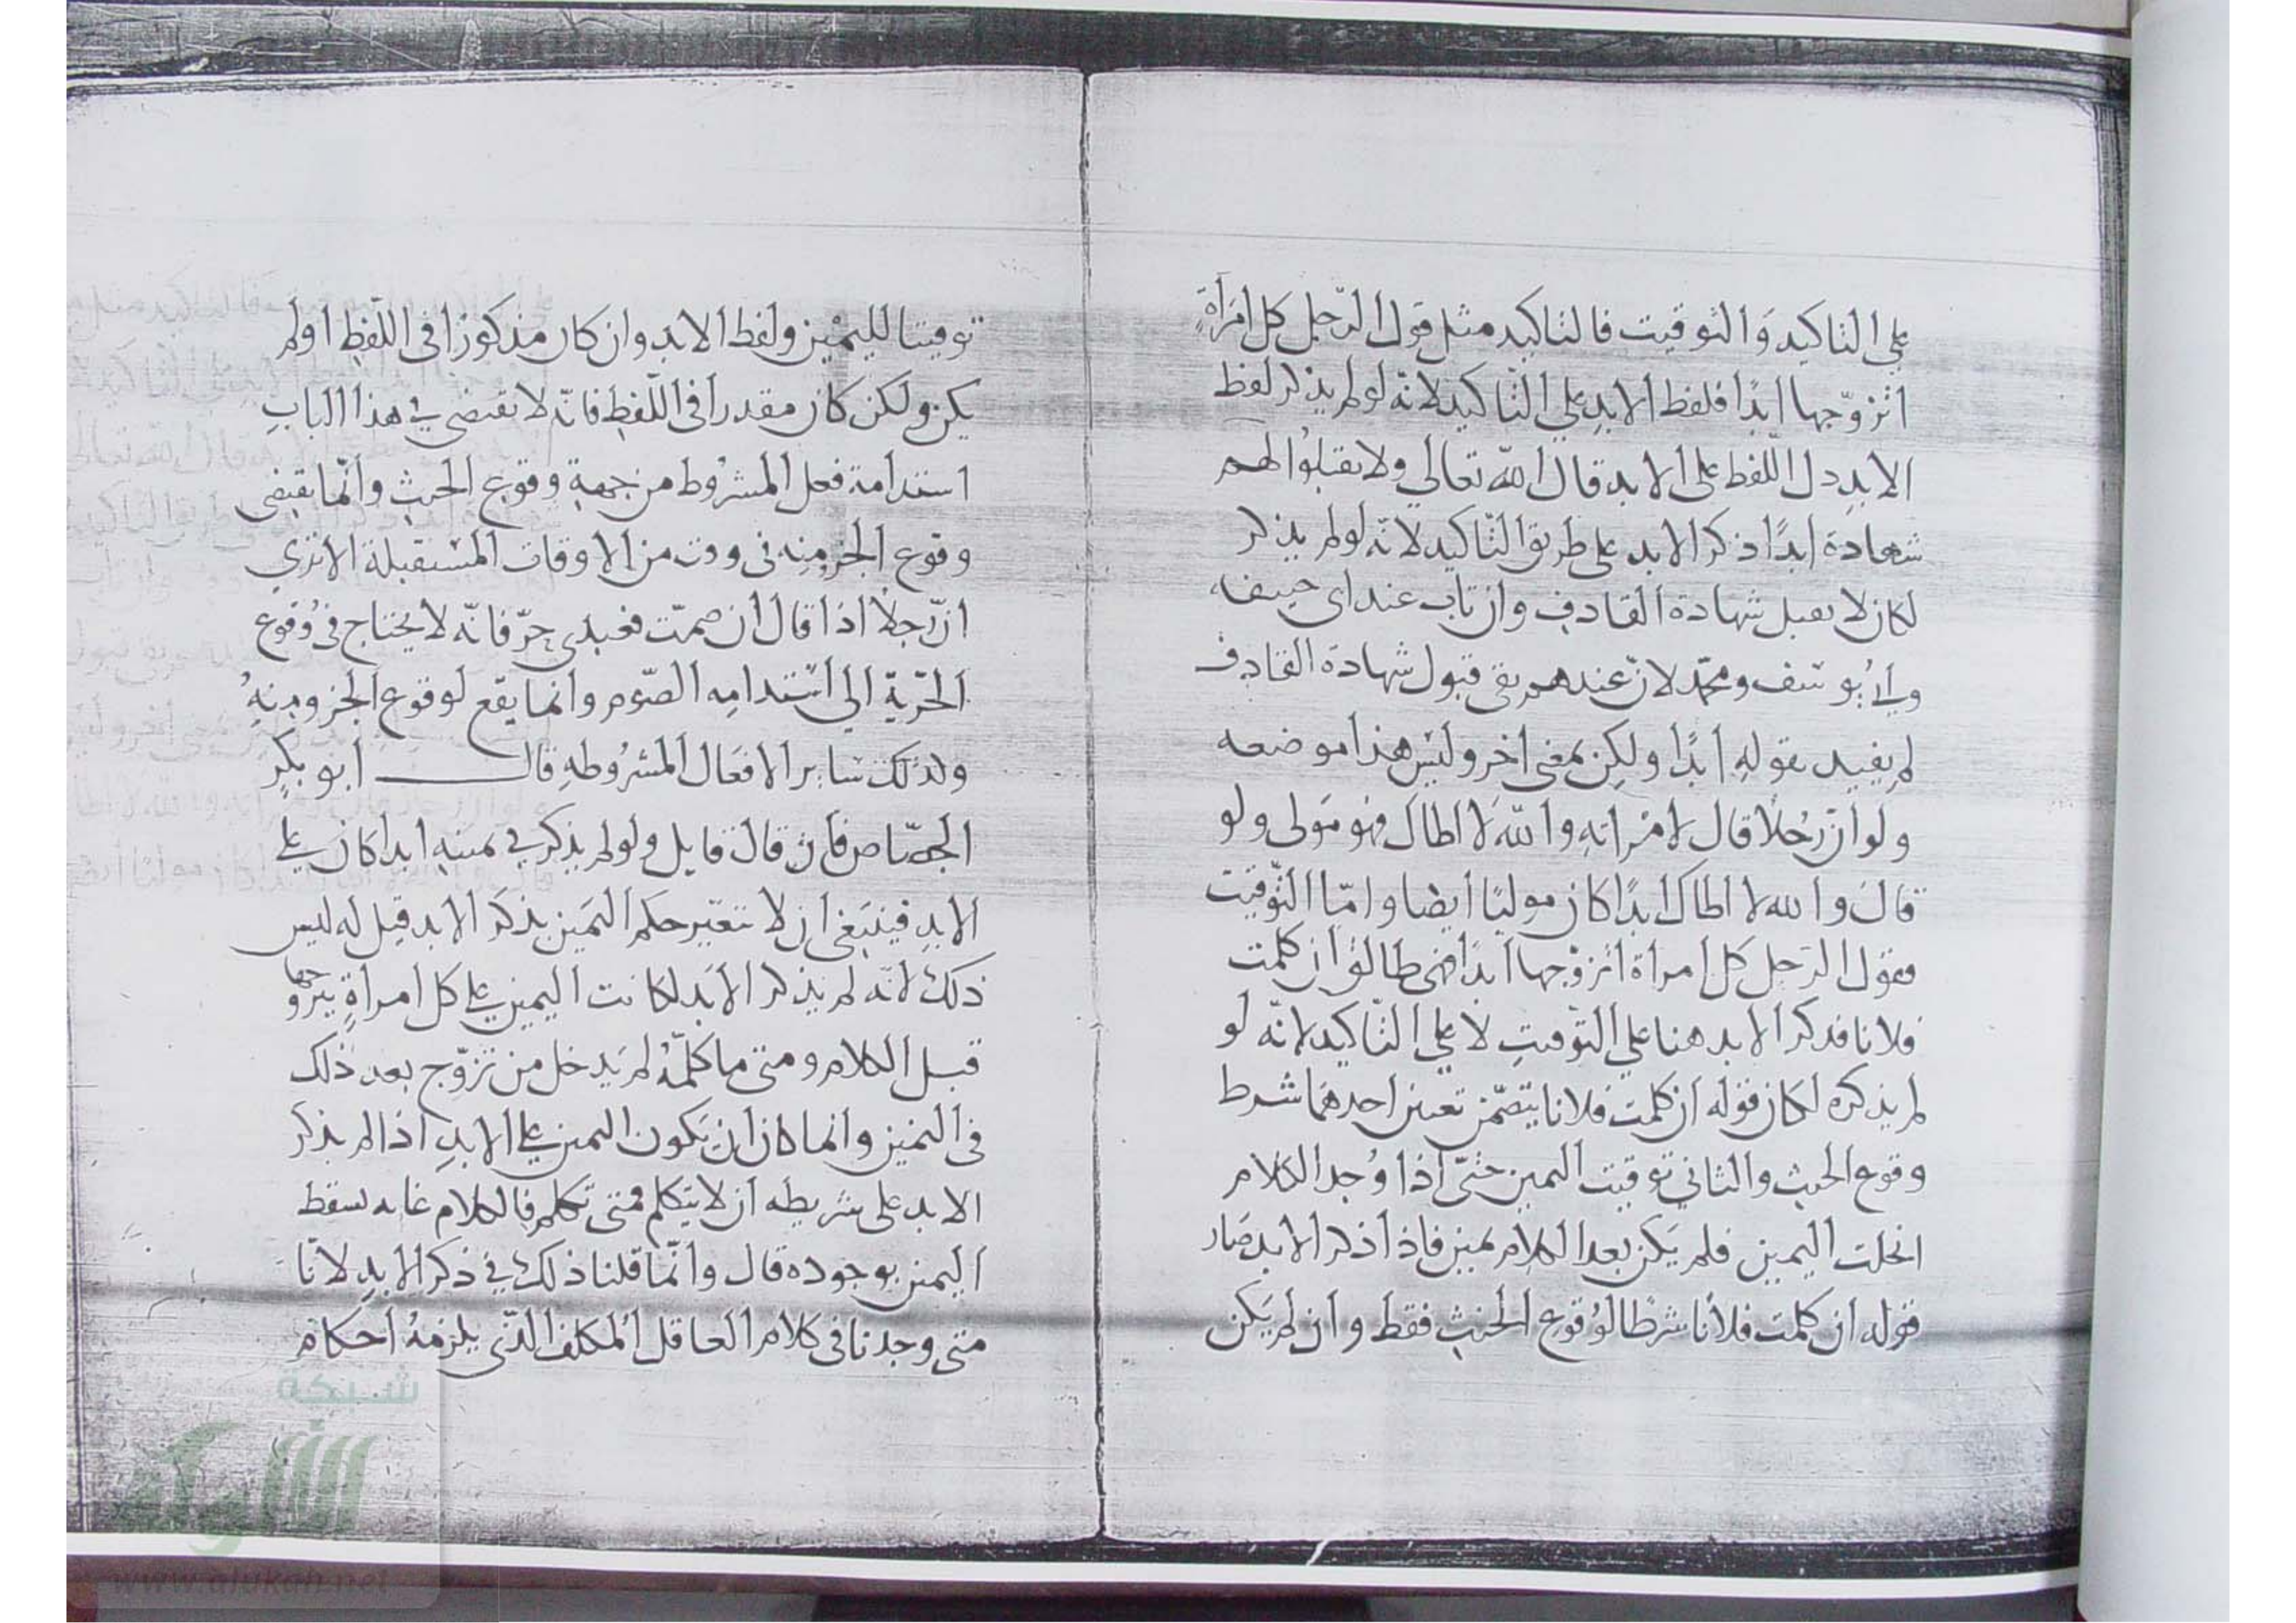 على التاكيد وَالتوقيت فالتاكيد مثل قول الرّجل كل امْرَأَةٍ
اتزوّجها ابدًا فلفظ الابد على التّاكيد لانّه لو لم يذكر لفظ
الابدِ دل اللّفظ على الابد قال اللّه تعالى ولا تقبلوا لهم
شهادة ابدًا ذكر الابد على طريق التّاكيد لانّه لو لم يذكر
لكان لا يقبل شهادة القاذفِ وان تاب عند ابى حنيفه
وابُو يوسف ومحمّد لانّ عندهم بقى قبول شهادة القاذف
لم يفيد بقولهِ ابدًا ولكِن بمعنى اخر وليْس هذا موضعه
ولو انّ رَجُلاً قال لامْراتهِ واللّه لا اطاكَ فهو مَولى ولو
قال والله لا اطاك ابدًا كان موليًا ايضا وامّا التّوقيت
فقول الرّجل كل امراة اتزوّجها ابدًا فهى طالق ان كلمت
فلانا فذكر الابد هنا على التوّقيتِ لا على التّاكيد لانّه لو
لم يذكره لكان قوله ان كلمت فلانا يتضمّن تعينن احدهمَا شرط
وقوع الحنثِ والثاني توقيت اليمين حتىّ اذا وُجد الكلام
انحلت اليمين فلم يَكن بعد الكلام يمين فاذا ذكر الابد صَار
قوله ان كلمت فلانًا شرطًا لوُقوع الحنثِ فقط وان لم يَكن
توقيتا لليمْين ولفظ الابد وان كان مذكورًا فى اللّفظِ او لم
يكن ولكن كان مقدرا فى اللّفظِ فانّه لا يقتضى في هذا البابِ
استدامة فعل المشرُوط من جهة وقوع الحنث وانّما يقتضى
وقوع الجزمنِه فى وقت من الاوقات المسْتقبلة الا ترى
انّ رجلاً اذا قال ان صمت فعبدى حرّ فانّه لا يحتاج فى وُقوع
الحّريّة الى اسْتدامه الصّوم وانما يقع لوقوع الجزومنهُ
ولذلك سَاير الافعَال المشرُوطهِ قال ابو بكرٍ
الجصّاص فان قال قايل ولو لم يذكر في يمينهِ ابدا كان على
الابدِ فينبَغى ان لا تتغيّر حكم اليمَين بذكر الابد قيل له ليس
ذلك لانّه لم يذكر الابَد لكانت اليمين على كل امراةٍ يتزوّجها
قبل الكلام ومتى ما كلمّهُ لم يَدخل من تزوّج بعد ذلك
فى اليمَين وانما كان ان يَكون اليمين على الابدِ اذا لم يذكر
الابد على شريطه ان لا يتكلم فمتى تكلم فالكلام غايه تسقط
اليمين بوجوده قال وانّما قلنا ذلك في ذكر الابدِ لانّا
متى وجدنا فى كلام العاقل المكلف الذّى يلزمهُ احكام
شبكة
الألوكة
www.alukah.net